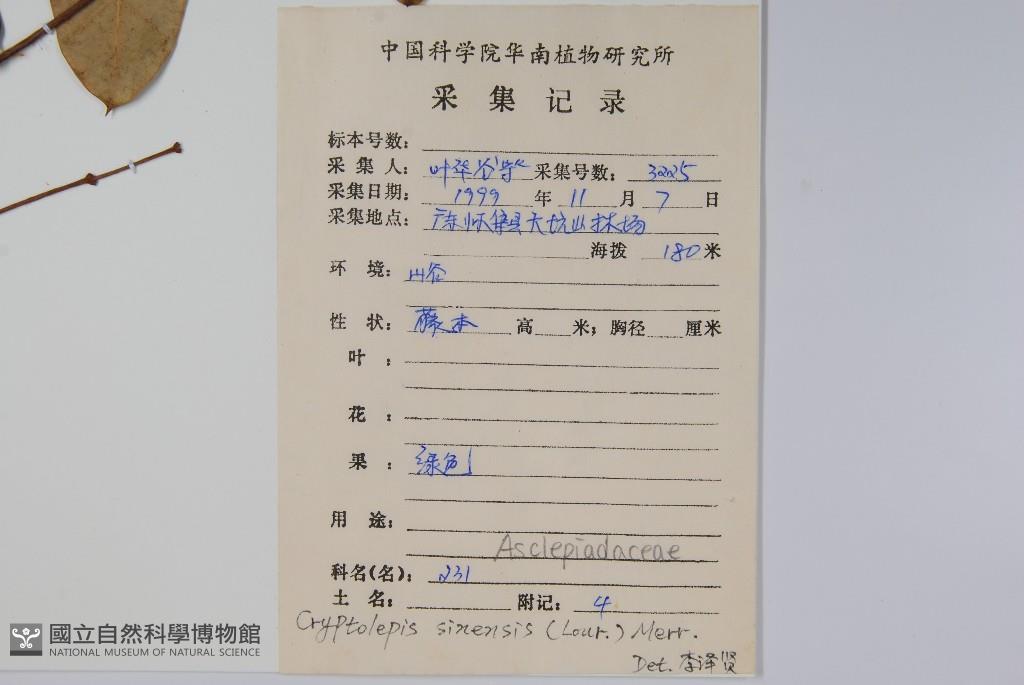 中国科学院华南植物研究所
采集记录
标本号数：
采集人：叶华谷等 采集号数：3225
采集日期：1999年11月7日
采集地点：广东怀集县大坑山林场
海拨 180米
环境：山谷
性状：藤本 高 米；胸径 厘米
叶：
花：
果：绿色
用途：
Asclepiadaceae
科名(名)：231
土名： 附记：4
Cryptolepis sinensis (Lour.) Merr.
Det. 李泽贤
國立自然科學博物館
NATIONAL MUSEUM OF NATURAL SCIENCE